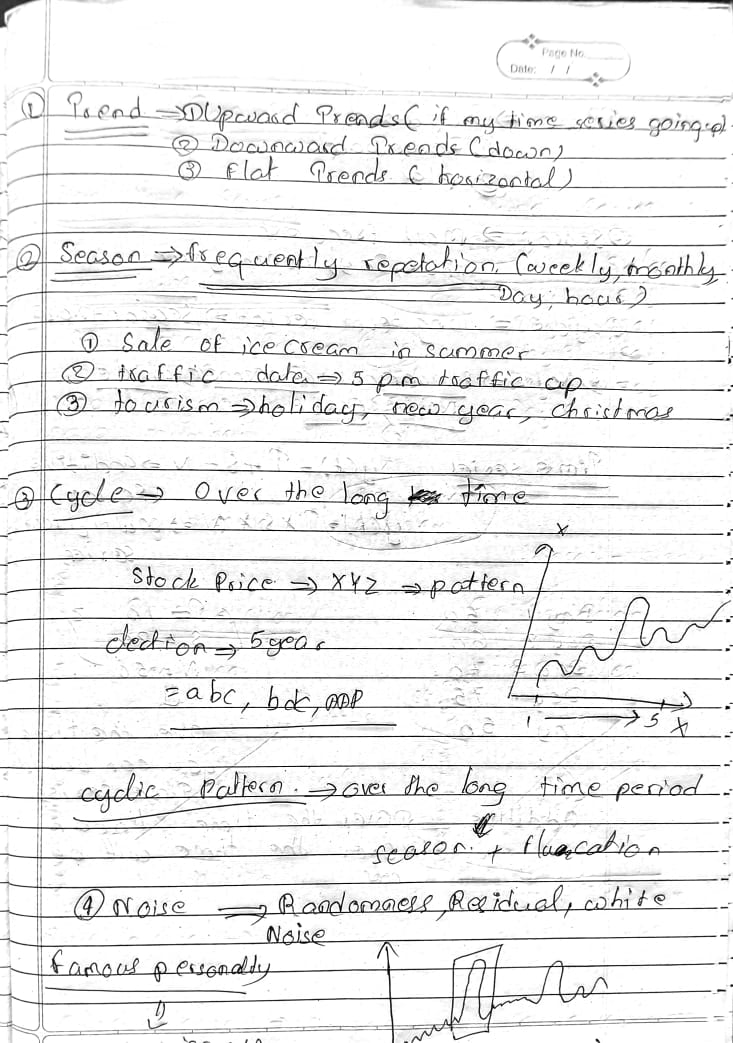 Page No.
Date: / /
① Trend ⇒ ① Upward Trends ( if my time series going up)
② Downward Trends (down)
③ flat Trends ( horizontal)
② Season ⇒ frequently repetation. (weekly, monthly
Day, hour)
① Sale of ice cream in summer
② traffic data ⇒ 5 pm traffic up
③ tourism ⇒ holiday, new year, christmas
③ Cycle → Over the long time
X
Stock Price → XYZ ⇒ pattern
election → 5 year
= abc, bdc,
1 → 5 X
cyclic pattern. → over the long time period
season. + fluacation
④ Noise → Randomness, Residual, white
Noise
famous personality